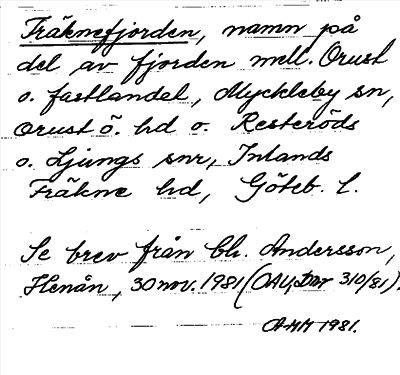 Fräknefjorden, namn på
del av fjorden mell. Orust
o. fastlandet, Myckleby sn,
Orust ö. hd o. Resteröds
o. Ljungs snr, Inlands
Fräkne hd, Göteb. l.
Se brev från Ch. Andersson,
Henån, 30 nov. 1981 (OAU, Dnr 310/81).
AMM 1981.